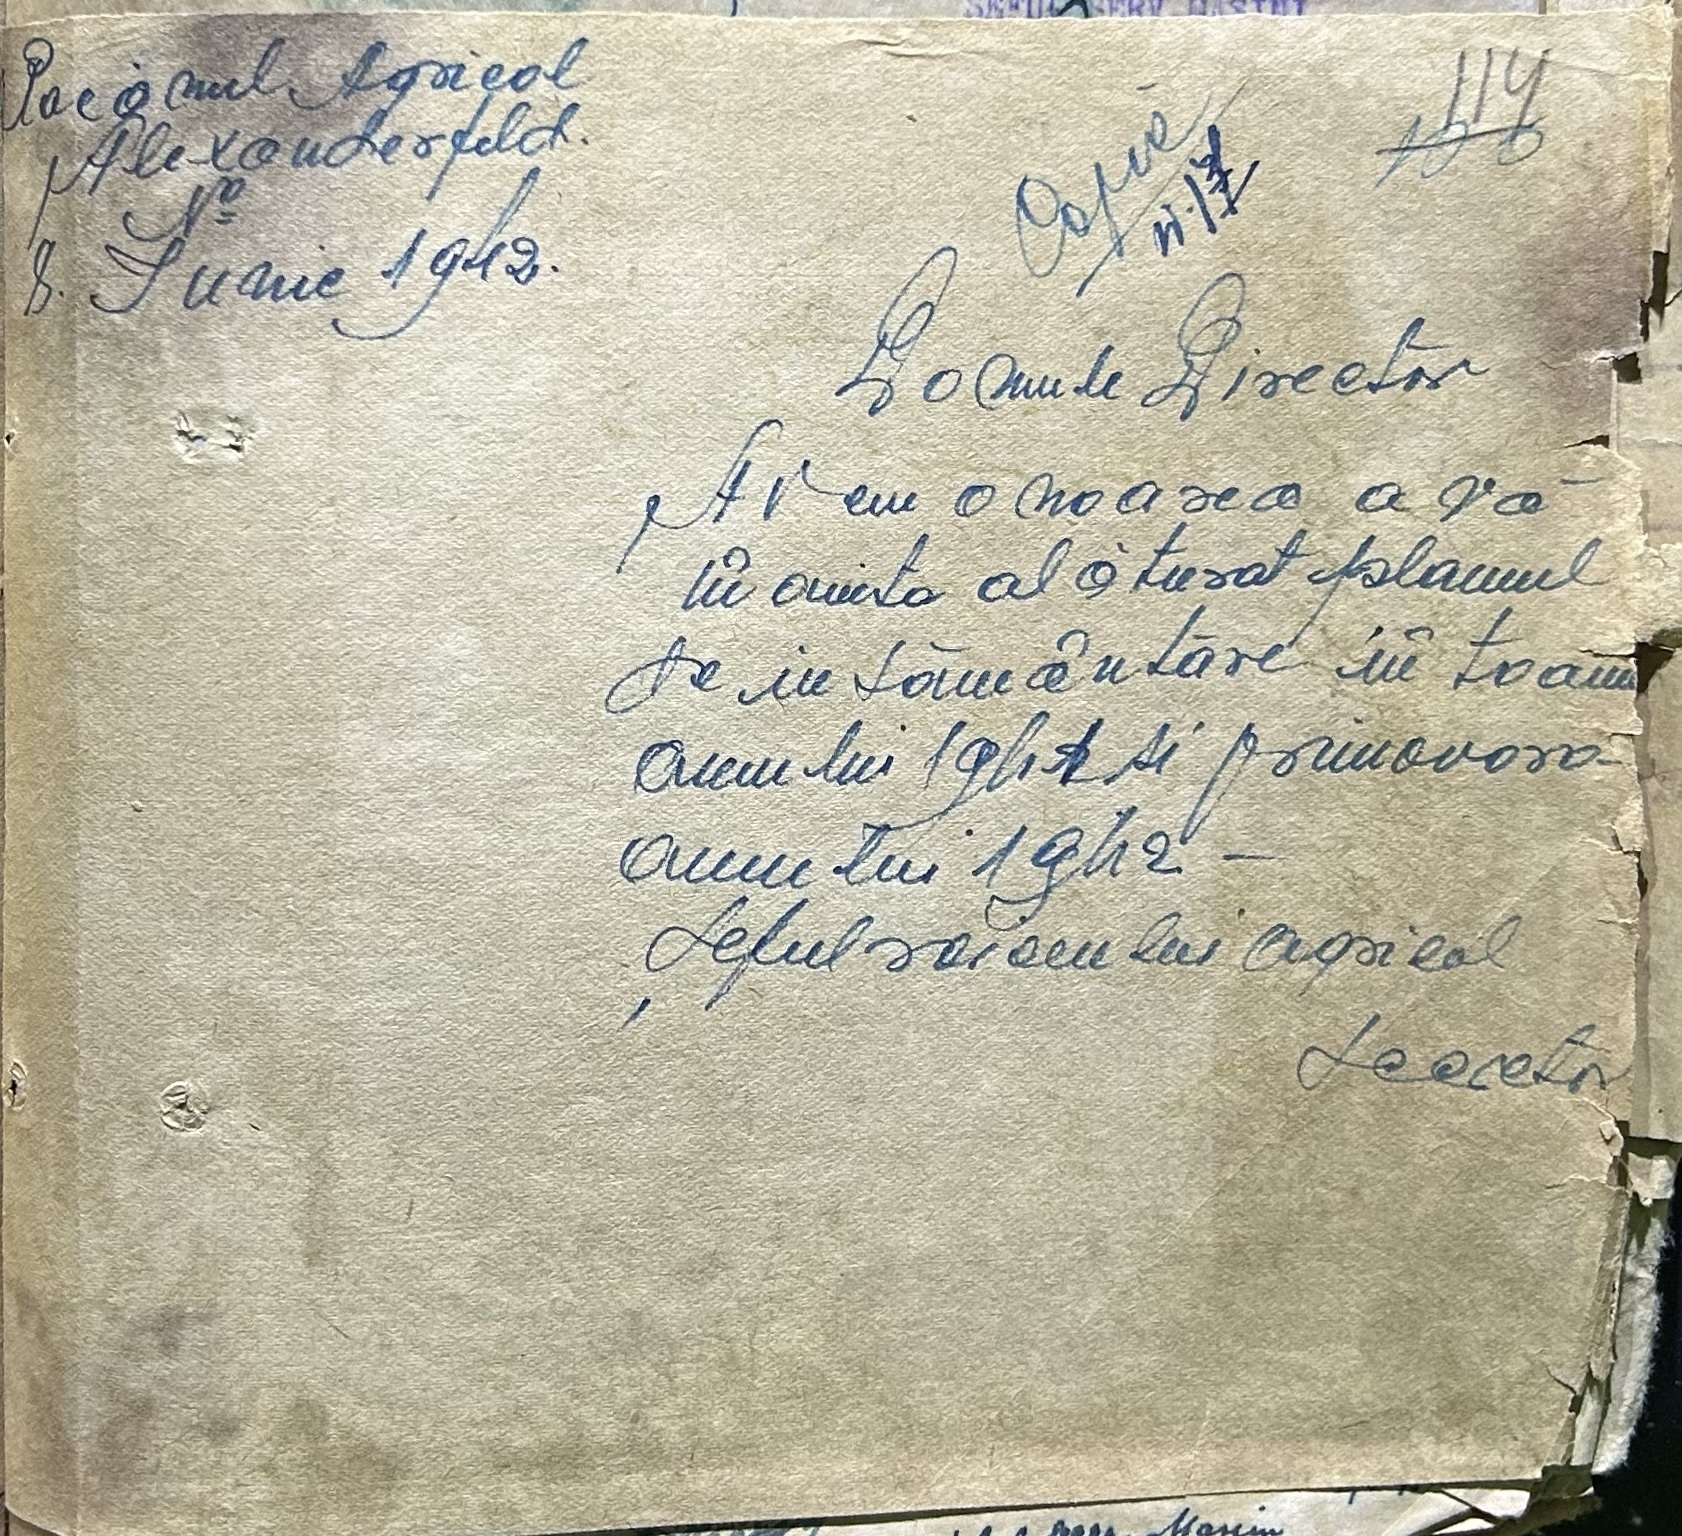 Raionul Agricol
Alexanderfeld.
No
8. Iunie 1942.
Copie
114
Domnule Director
Avem onoarea a vă
înainta alăturat planul
de insămânțare în toamn
anului 1941 si primavara
anului 1942 –
Șeful raionului agricol